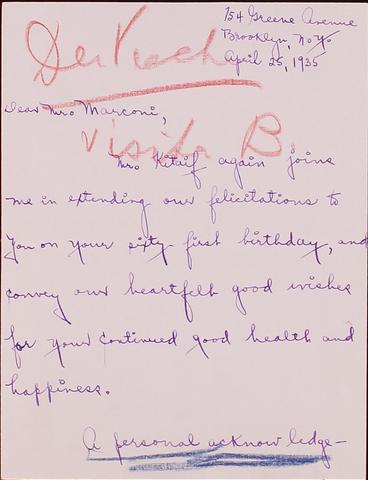 754 Greene Avenue
Brooklyn, N.Y.
April 25, 1935
Dear Mr. Marconi,
Visita B.
Mr. Kitaif again joins
me in extending our felicitations to
you on your sixty first birthday, and
convey our heartfelt good wishes
for your continued good health and
happiness.
A personal acknowledge-